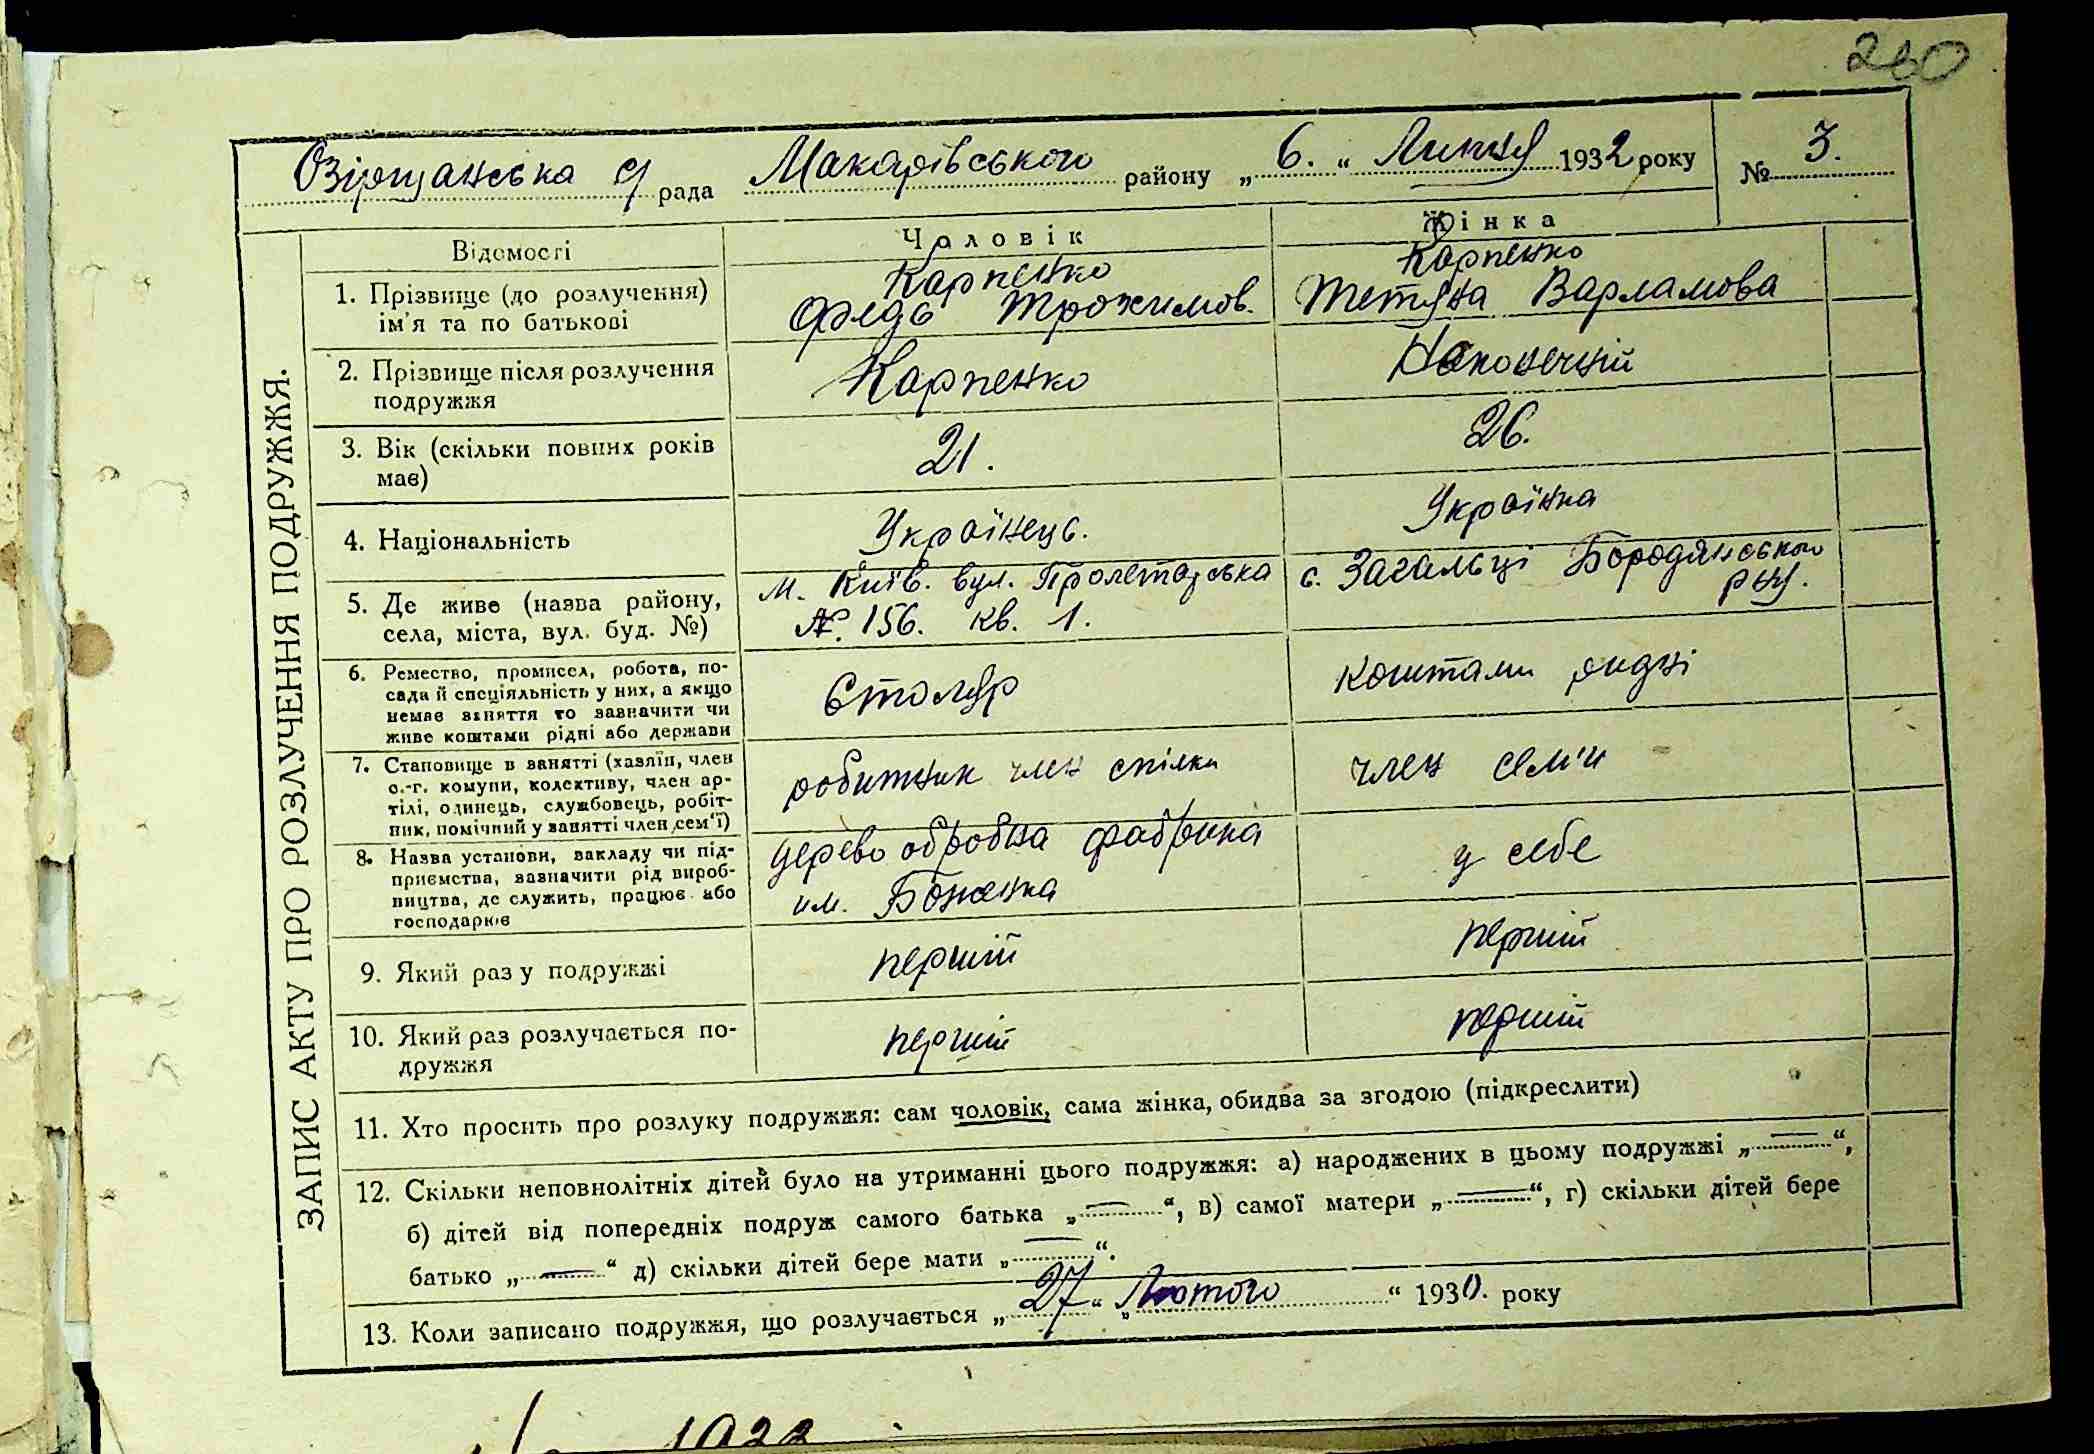 260
Озірщанська с/рада Макарівського району „6.“ Липня 1932 року № 3.
ЗАПИС АКТУ ПРО РОЗЛУЧЕННЯ ПОДРУЖЖЯ.
Відомості Чоловік Жінка
1. Прізвище (до розлучення) Карпенко Карпенко
ім'я та по батькові Федь Трохимов. Тетяна Варламова
2. Прізвище після розлучення Карпенко
подружжя
3. Вік (скільки повних років 21. 26.
має)
4. Національність Українець. Українка
5. Де живе (назва району, м. Київ. вул. Пролетарська с. Загальці Бородянського
села, міста, вул. буд. №) №. 156. кв. 1. р-ну.
6. Ремество, промисел, робота, по-
сада й спеціяльність у них, а якщо Столяр коштами ридні
немає заняття то зазначити чи
живе коштами рідні або держави
7. Становище в занятті (хазяїн, член
с.-г. комуни, колективу, член ар- робитник член спілки член сем'и
тілі, одинець, службовець, робіт-
ник, помічний у занятті член сем'ї)
8. Назва установи, закладу чи під- дерево обробна фабрика у себе
приємства, зазначити рід вироб- им. Боженка
ництва, де служить, працює або
господарює
9. Який раз у подружжі перший перший
10. Який раз розлучається по- перший перший
дружжя
11. Хто просить про розлуку подружжя: сам чоловік, сама жінка, обидва за згодою (підкреслити)
12. Скільки неповнолітніх дітей було на утриманні цього подружжя: а) народжених в цьому подружжі „—“,
б) дітей від попередніх подруж самого батька „—“, в) самої матери „—“, г) скільки дітей бере
батько „—“ д) скільки дітей бере мати „—“.
13. Коли записано подружжя, що розлучається „27“ „Лютого“ 1930. року